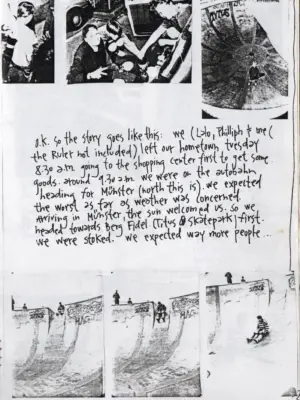 o.k. so the story goes like this: we (Lalo, Philliph & me (
the Ruler not included) left our hometown, tuesday
8.30 a.m. going to the shopping center first to get some
goods. around 9.30 a.m. we were on the autobahn
heading for Münster (north this is). we expected
the worst as far as weather was concerned.
arriving in Münster, the sun welcomed us. so we
headed towards Berg Fidel (Titus skatepark) first.
we were stoked. we expected way more people...